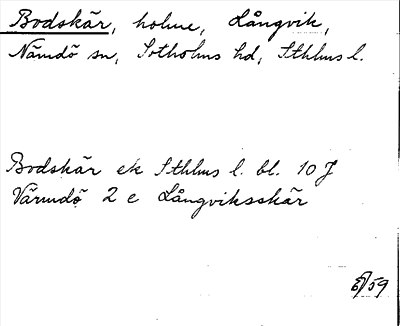 Bodskär, holme, Långvik,
Nämdö sn, Sotholms hd, Sthlms l.
Bodskär ek Sthlms l. bl. 10 J
Värmdö 2 e Långviksskär
59